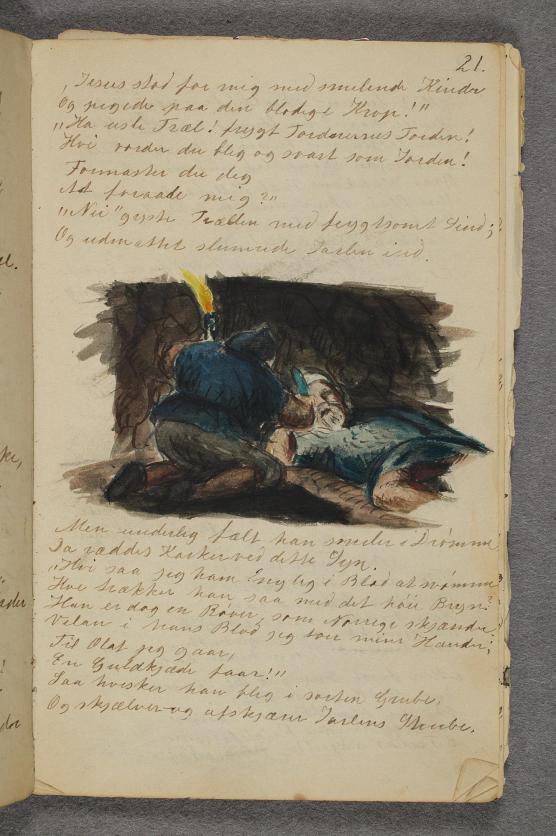 21.
„Jesus stod for mig med smilende Kinder
Og pegede paa din blodige Krop!"
„Ha usle Træl! frygt Tordnerens Torden!
Hvi vorder du bleg og svart som Jorden!
Formaster du dig
At foraade mig?"
„Nei" gyste Trællen med frygtsomt Sind;
Og udmattet slumrede Jarlen ind.
Men underlig fælt han smiler i Drømme
Da ræddes Karker ved dette Syn.
„Hvi saa jeg ham nylig i Blod at svømme
Hvi trækker han saa med det høie Bryn?
Han er dog en Røver, som Norrige skjænder.
Velan i hans Blod jeg toer mine Hænder;
Til Olaf jeg gaar,
En Guldkjæde faar!"
Saa hvisker han bleg i sorten Grube,
Og skjælver og afskjærer Jarlens Strube.